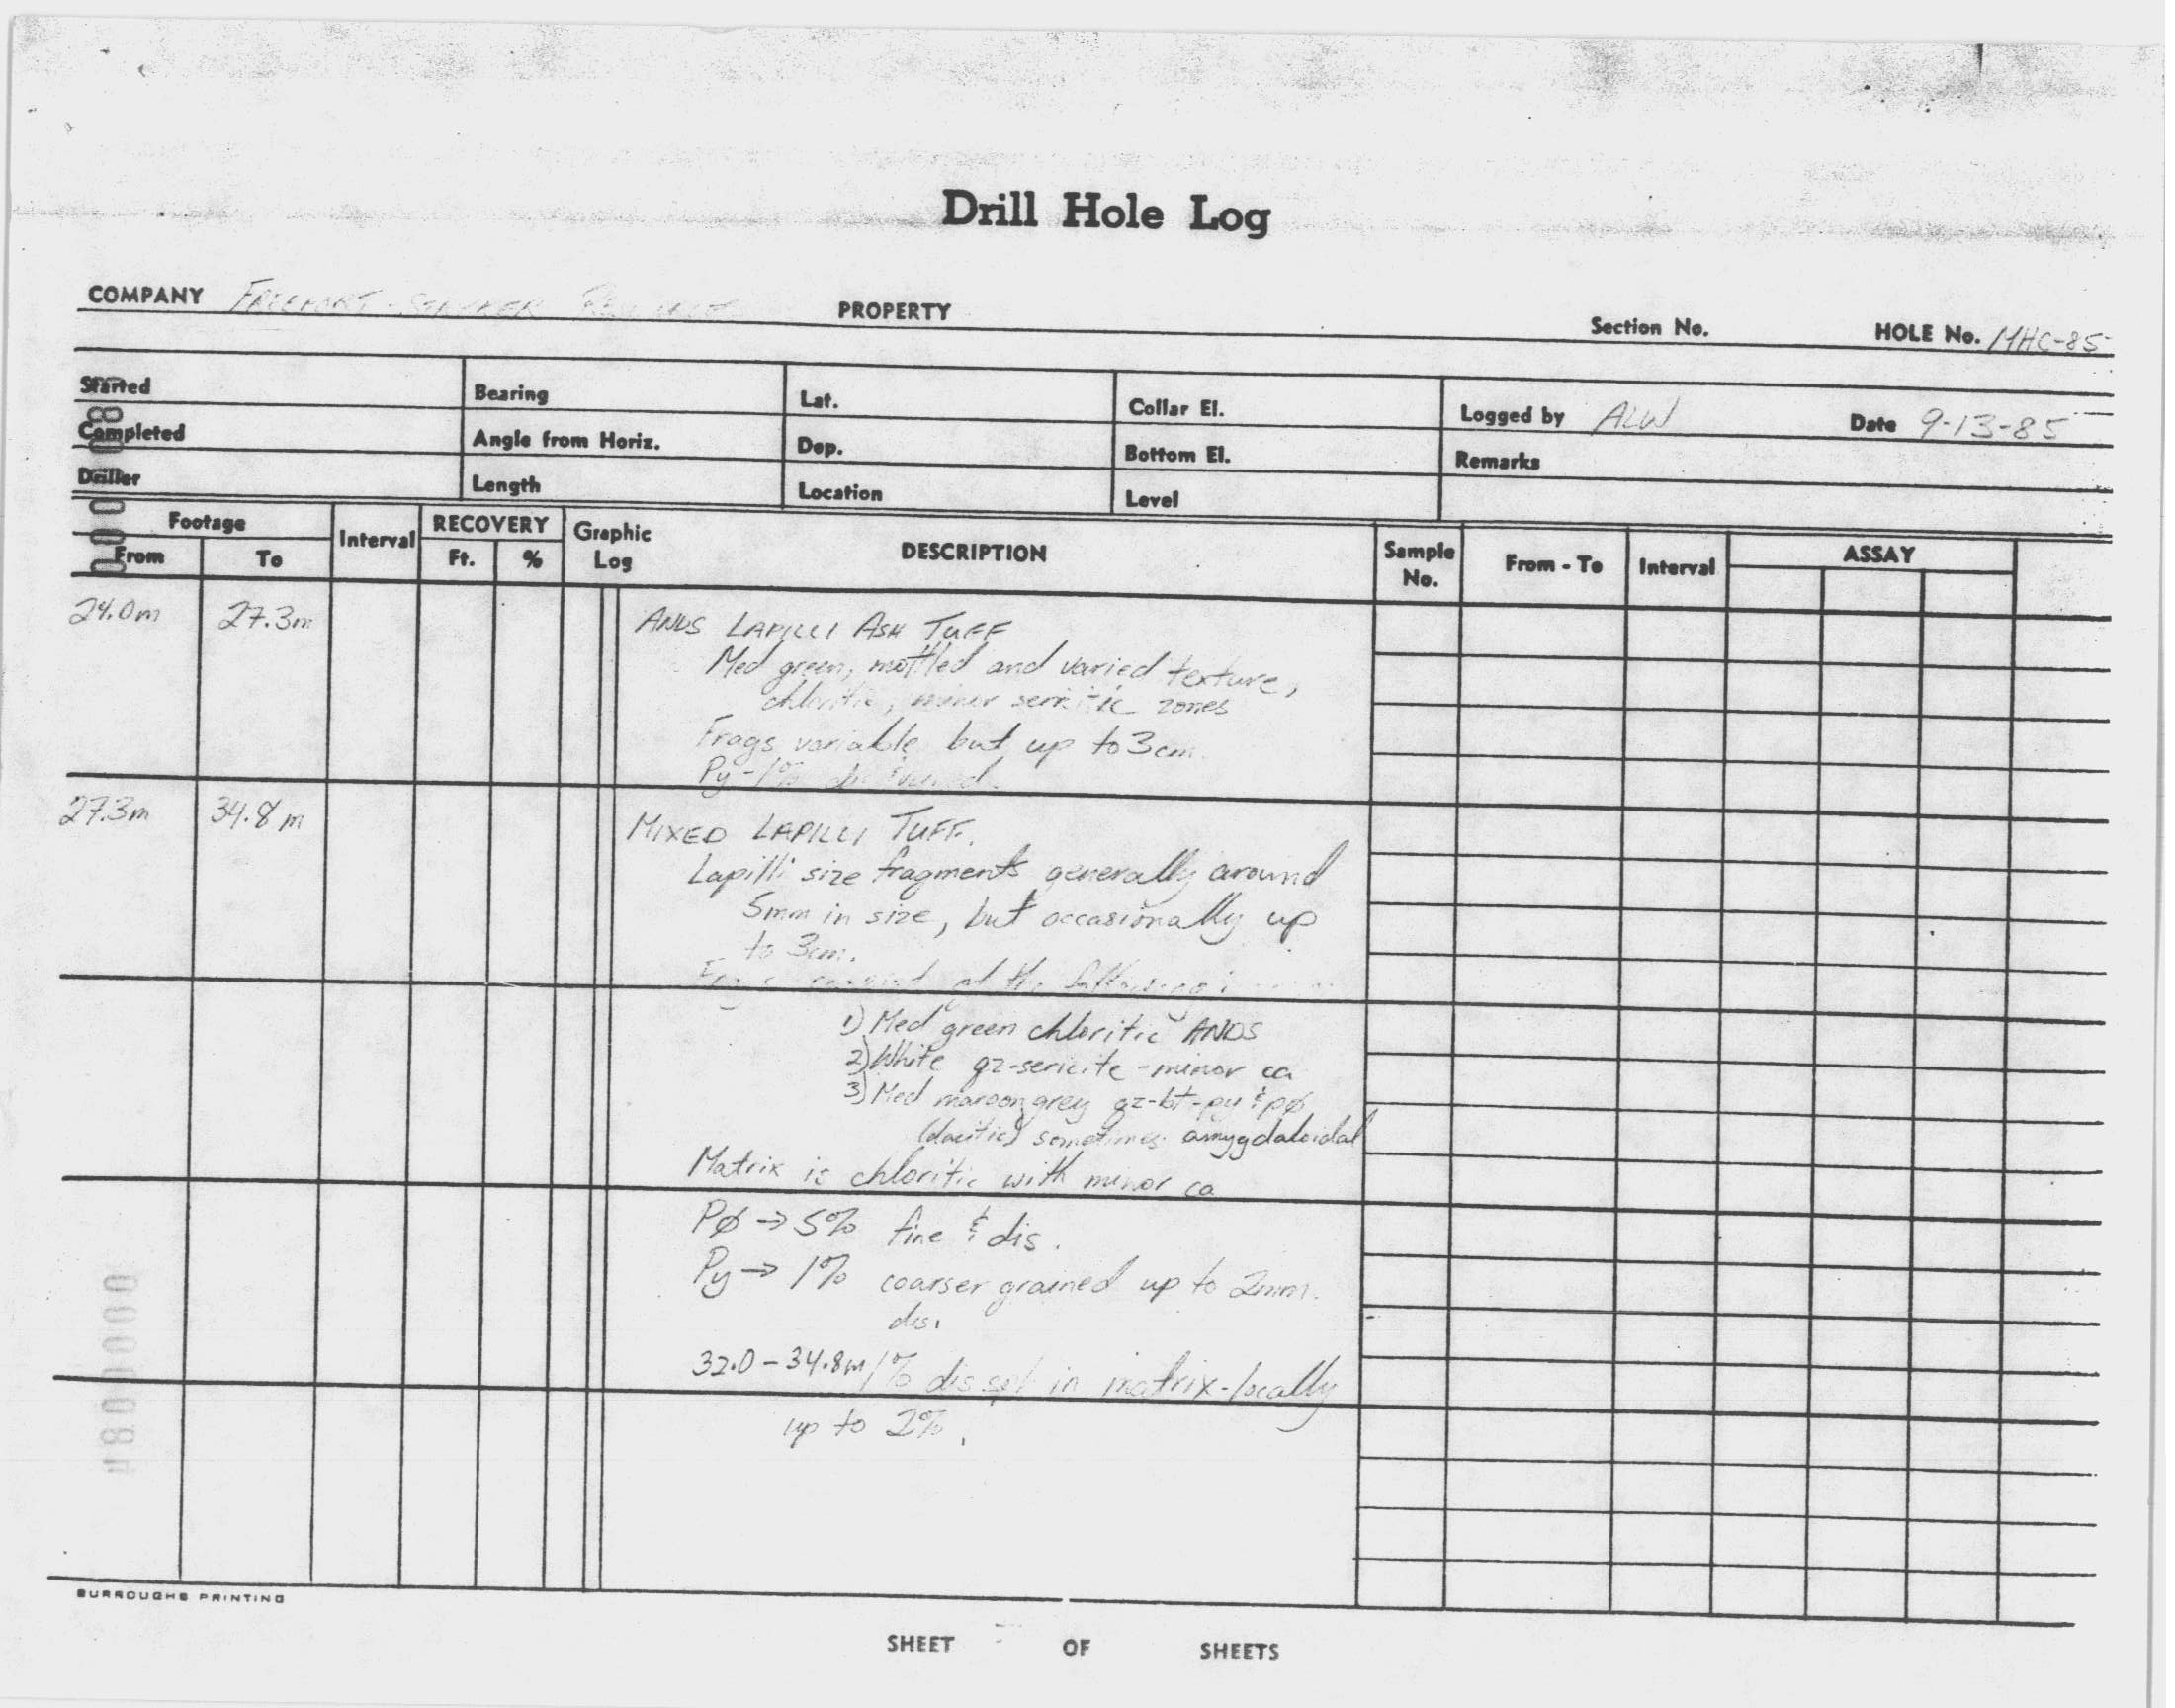 Drill Hole Log
COMPANY PROPERTY Section No. HOLE No. MHC-85
Started Bearing Lat. Collar El. Logged by ALW Date 9-13-85
Completed Angle from Horiz. Dep. Bottom El. Remarks
Driller Length Location Level
Footage Interval RECOVERY Graphic Log DESCRIPTION Sample No. From - To Interval ASSAY
From To Ft. %
24.0m 27.3m ANDS LAPILLI ASH TUFF
Med green, mottled and varied texture,
chloritic, minor sericitic zones
Frags variable but up to 3cm.
Py-1%
27.3m 34.8m MIXED LAPILLI TUFF.
Lapilli size fragments generally around
5mm in size, but occasionally up
to 3cm.
Frags consist of the following:
1) Med green chloritic ANDS
2) White qz-sericite-minor ca
3) Med maroon grey qz-bt-py & pø
(dacitic) sometimes amygdaloidal
Matrix is chloritic with minor ca
Pø → 5% fine & dis.
Py → 1% coarser grained up to 2mm.
dis.
32.0-34.8m 1% dis spl in matrix-locally
up to 2%.
BURROUGHS PRINTING
SHEET OF SHEETS